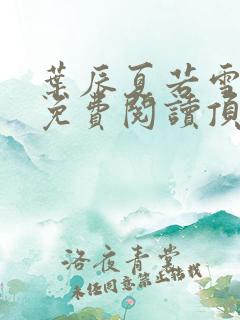 葉辰夏若雪
免費閱讀頂
洛夜青裳
未經同意禁止轉載